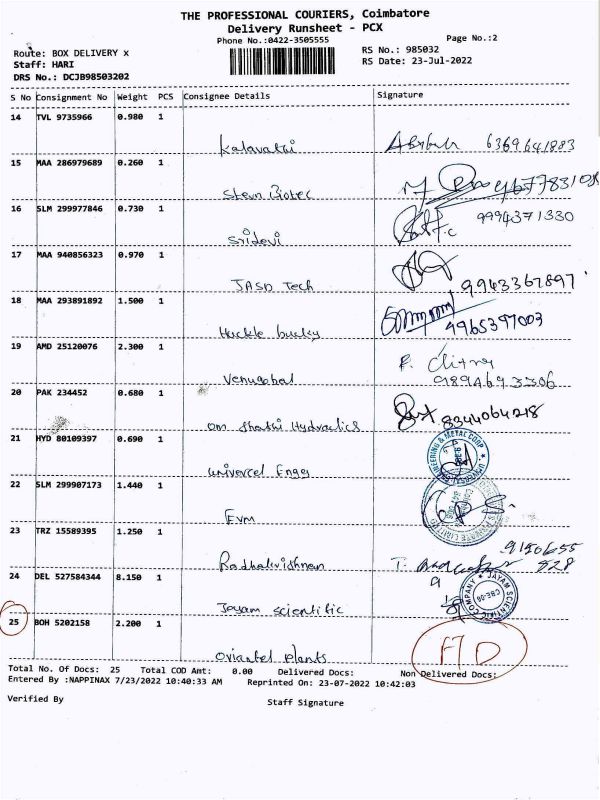 THE PROFESSIONAL COURIERS, Coimbatore
Delivery Runsheet - PCX
Phone No.:0422-3505555 Page No.:2
Route: BOX DELIVERY x RS No.: 985032
Staff: HARI RS Date: 23-Jul-2022
DRS No.: DCJB98503202
S No Consignment No Weight PCS Consignee Details Signature
14 TVL 9735966 0.980 1
Kalavathi 6369641883
15 MAA 286979689 0.260 1
Stern Biotec
16 SLM 299977846 0.730 1
Sridevi 9994371330
17 MAA 940856323 0.970 1
JASD Tech 9943367897
18 MAA 293891892 1.500 1
Huckle bucky 9965397003
19 AMD 25120076 2.300 1
Venugobal 9894693306
20 PAK 234452 0.680 1
Om Shathi Hydraulics 8344064218
21 HYD 80109397 0.690 1
Univercel Engg
22 SLM 299907173 1.440 1
EVM
23 TRZ 15589395 1.250 1
Radhakrishnan 9150655
528
24 DEL 527584344 8.150 1
Jayam scientific JAYAM SCIENTIFIC COMPANY
25 BOH 5202158 2.200 1
Oriantel plants FTD
Total No. Of Docs: 25 Total COD Amt: 0.00 Delivered Docs: Non Delivered Docs:
Entered By :NAPPINAX 7/23/2022 10:40:33 AM Reprinted On: 23-07-2022 10:42:03
Verified By Staff Signature